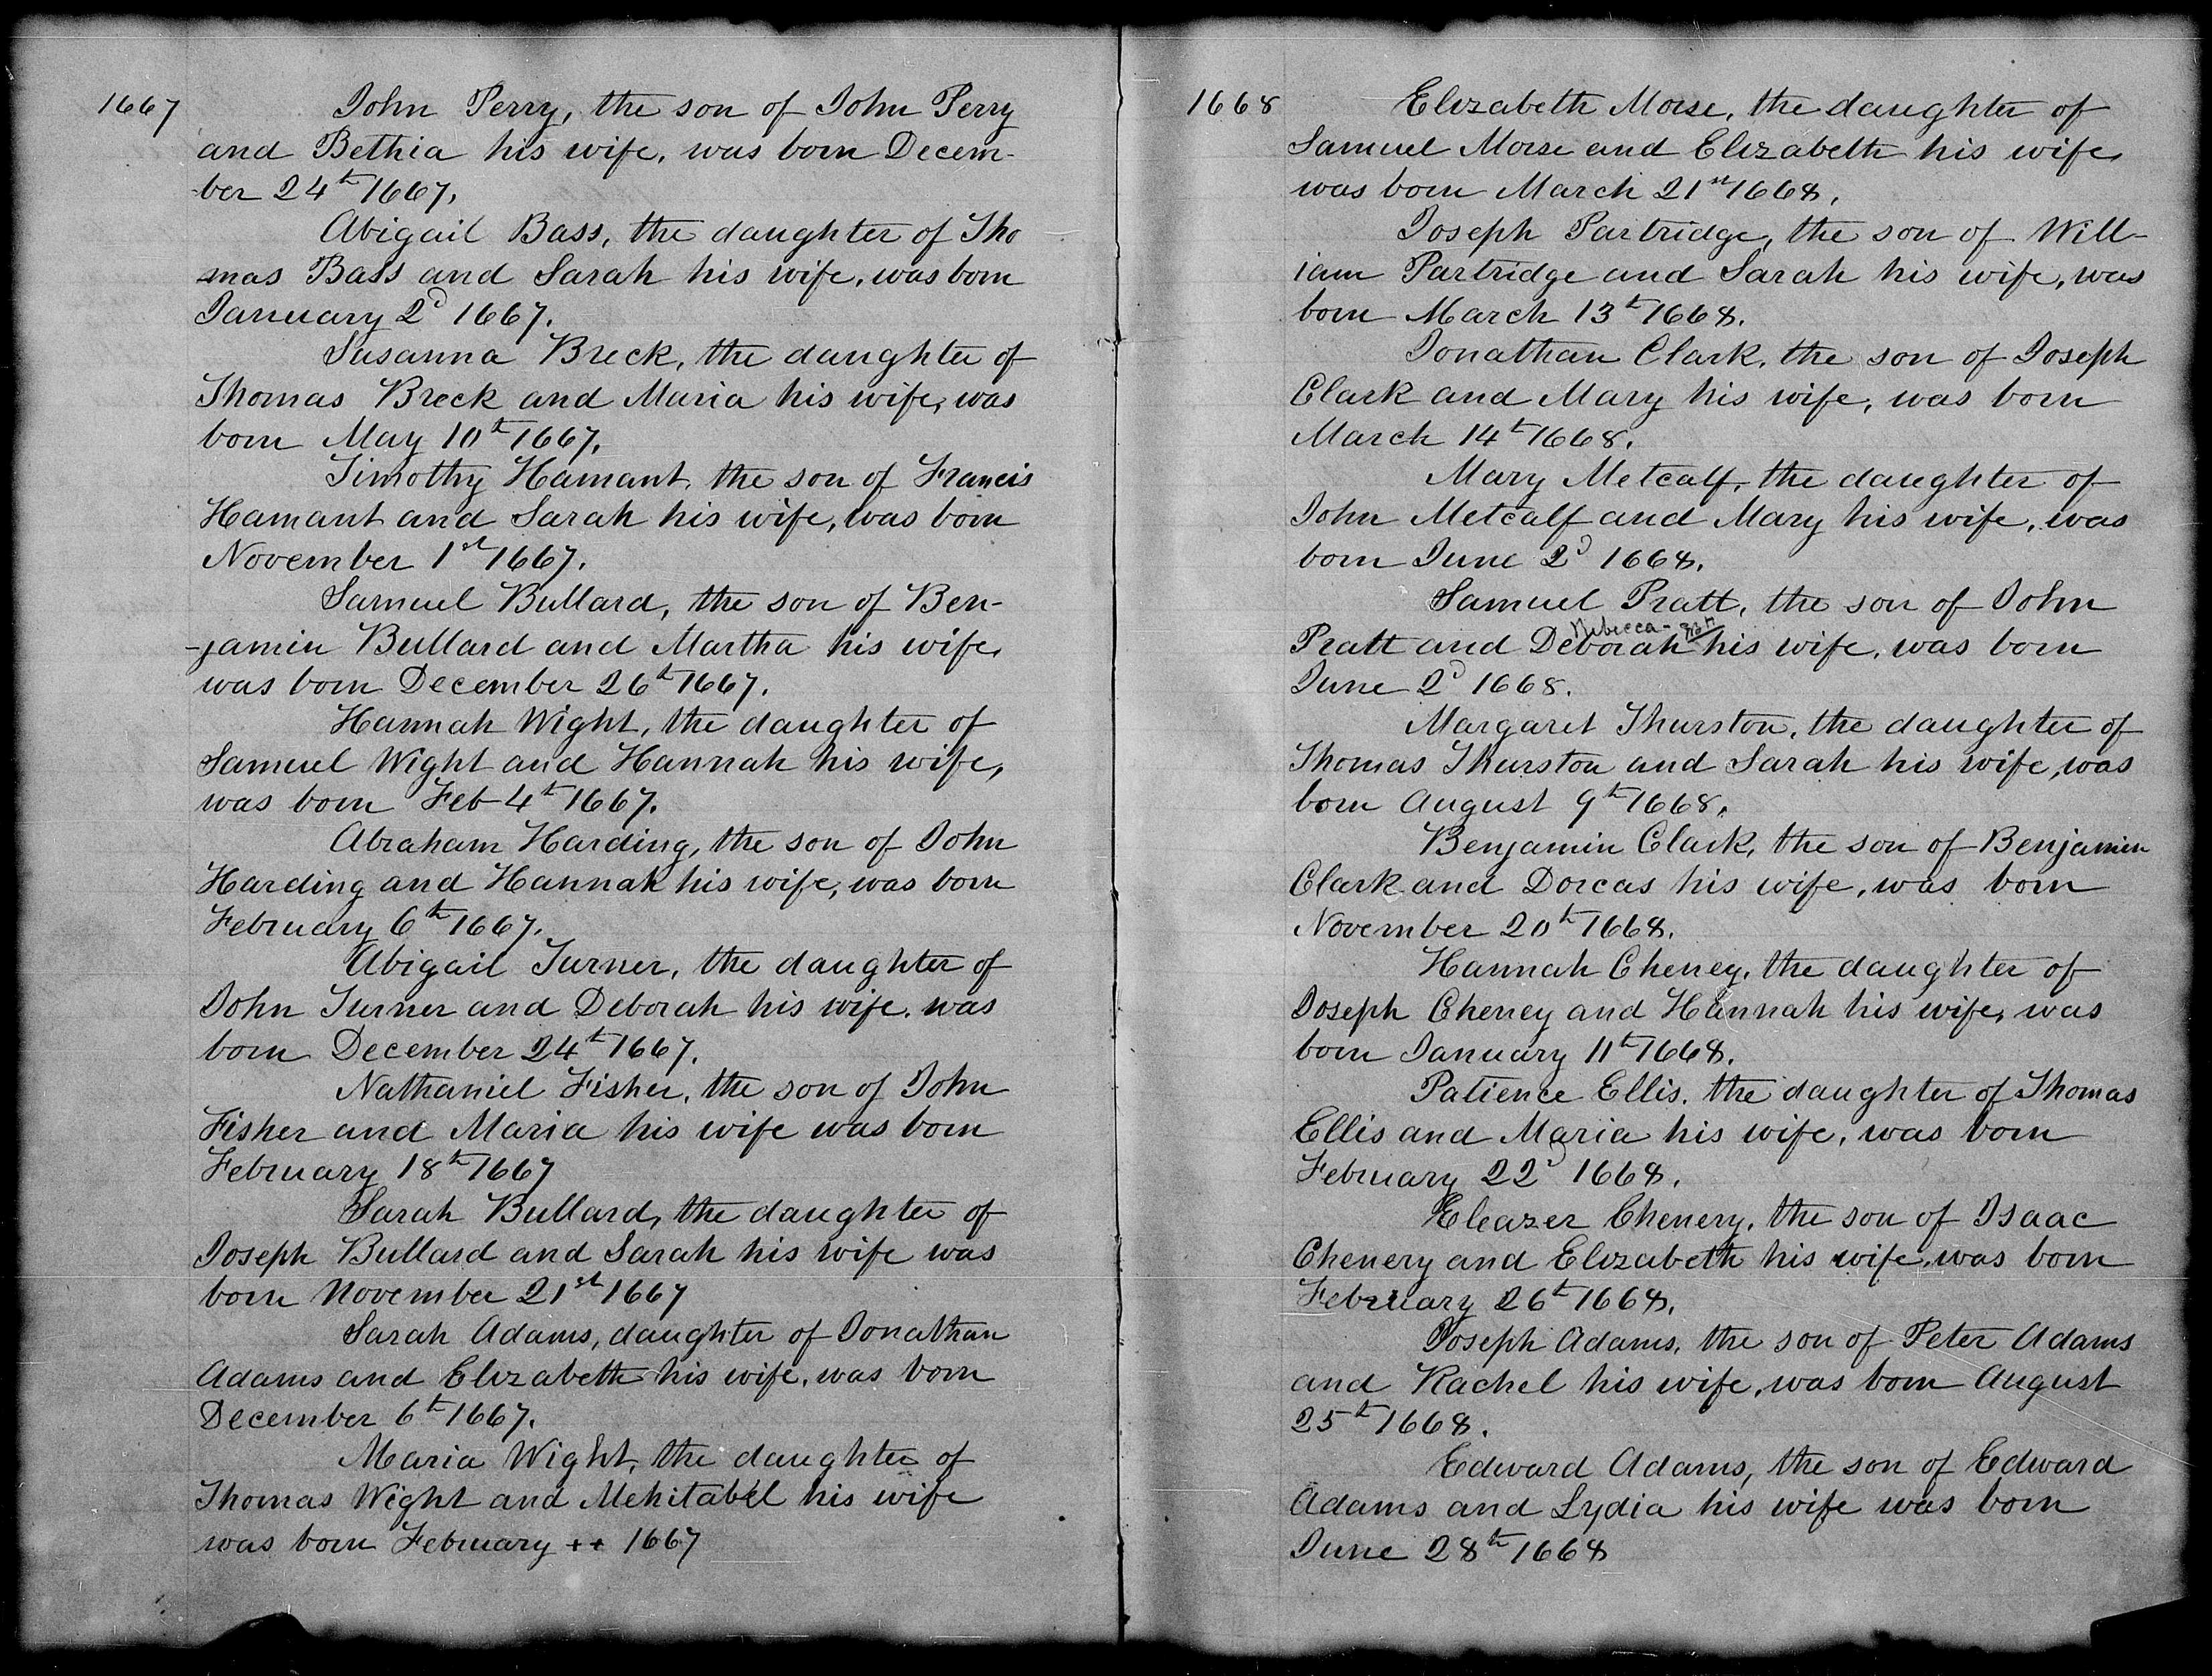 1667
John Perry, the son of John Perry
and Bethia his wife, was born Decem-
-ber 24th 1667.
Abigail Bass, the daughter of Tho
mas Bass and Sarah his wife, was born
January 2d 1667.
Susanna Breck, the daughter of
Thomas Breck and Maria his wife, was
born May 10th 1667.
Timothy Hamant, the son of Francis
Hamant and Sarah his wife, was born
November 1st 1667.
Samuel Bullard, the son of Ben-
-jamin Bullard and Martha his wife,
was born December 26th 1667.
Hannah Wight, the daughter of
Samuel Wight and Hannah his wife,
was born Feb 4th 1667.
Abraham Harding, the son of John
Harding and Hannah his wife, was born
February 6th 1667.
Abigail Turner, the daughter of
John Turner and Deborah his wife, was
born December 24th 1667.
Nathaniel Fisher, the son of John
Fisher and Maria his wife was born
February 18th 1667
Sarah Bullard, the daughter of
Joseph Bullard and Sarah his wife was
born November 21st 1667
Sarah Adams, daughter of Jonathan
Adams and Elizabeth his wife, was born
December 6th 1667.
Maria Wight, the daughter of
Thomas Wight and Mehitabel his wife
was born February ++ 1667
1668
Elizabeth Morse, the daughter of
Samuel Morse and Elizabeth his wife,
was born March 21st 1668.
Joseph Partridge, the son of Will-
iam Partridge and Sarah his wife, was
born March 13th 1668.
Jonathan Clark, the son of Joseph
Clark and Mary his wife, was born
March 14th 1668.
Mary Metcalf, the daughter of
John Metcalf and Mary his wife, was
born June 2d 1668.
Samuel Pratt, the son of John
Rebecca-
Pratt and Deborah his wife, was born
June 2d 1668.
Margaret Thurston, the daughter of
Thomas Thurston and Sarah his wife, was
born August 9th 1668.
Benjamin Clark, the son of Benjamin
Clark and Dorcas his wife, was born
November 20th 1668.
Hannah Cheney, the daughter of
Joseph Cheney and Hannah his wife, was
born January 11th 1668.
Patience Ellis, the daughter of Thomas
Ellis and Maria his wife, was born
February 22d 1668.
Eleazer Chenery, the son of Isaac
Chenery and Elizabeth his wife, was born
February 26th 1668.
Joseph Adams, the son of Peter Adams
and Rachel his wife, was born August
25th 1668.
Edward Adams, the son of Edward
Adams and Lydia his wife was born
June 28th 1668